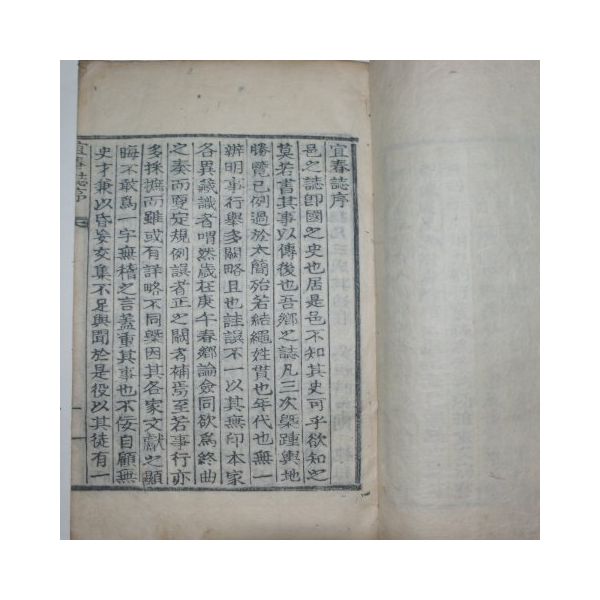 宜春誌序
邑之誌卽國之史也居是邑不知其史可乎欲知之
莫若書其事以傳後也吾鄉之誌凡三次槩踵輿地
勝覽已例過於太簡殆若結繩姓貫也年代也無一
辨明事行擧多闕略且也註誤不一以其無印本家
各異藏識者喟然歲在庚午春鄉論僉同欲爲終曲
之奏而釐定規例誤者正之闕者補焉至若事行亦
多採摭而雖或有詳略不同槩因其各家文獻之顯
晦不敢爲一字無稽之言蓋重其事也不佞自顧無
史才兼以昏妄交集不足與聞於是役以其徒有一
宜春誌序 一